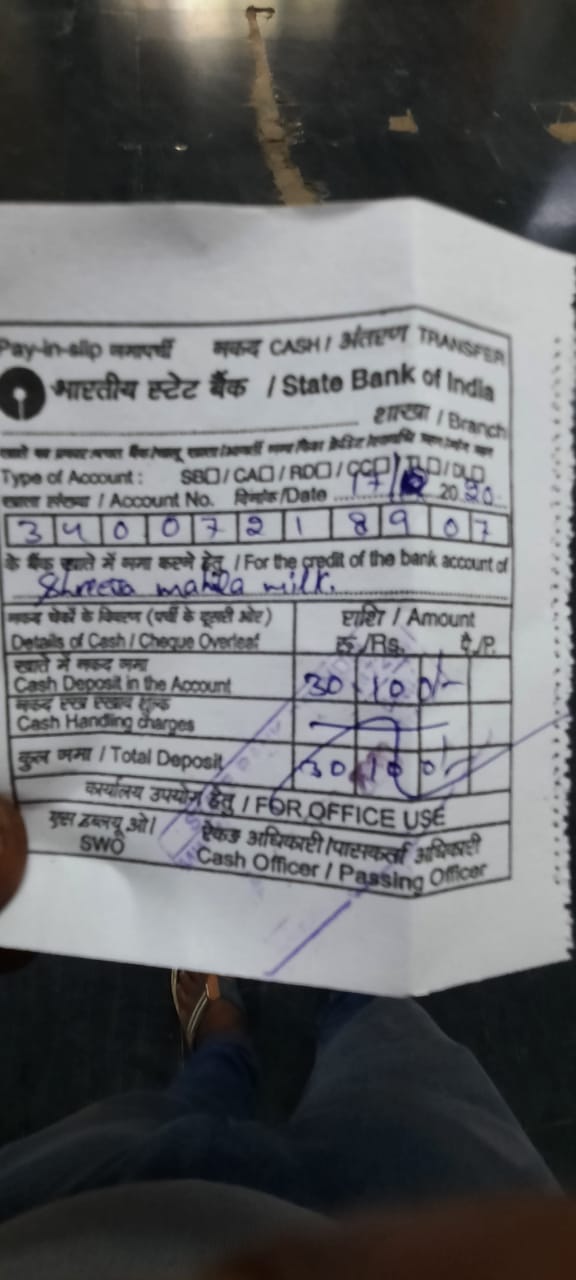 Pay-in-slip जमापर्ची नकद CASH / अंतरण TRANSFER
भारतीय स्टेट बैंक / State Bank of India
शाखा / Branch
Type of Account : SB□ / CA□ / RD□ / CC□ / TL□ / DL□
खाता संख्या / Account No. दिनांक/Date 17/ 2020
34007218907
के बैंक खाते में जमा करने हेतु / For the credit of the bank account of
mahila milk.
राशि / Amount
Details of Cash / Cheque Overleaf रु./Rs. पै./P.
खाते में नकद जमा
Cash Deposit in the Account 30100/-
Cash Handling charges
कुल जमा / Total Deposit 30100/-
कार्यालय उपयोग हेतु / FOR OFFICE USE
एस डब्ल्यू ओ/ रोकड़ अधिकारी/पासकर्ता अधिकारी
SWO Cash Officer / Passing Officer